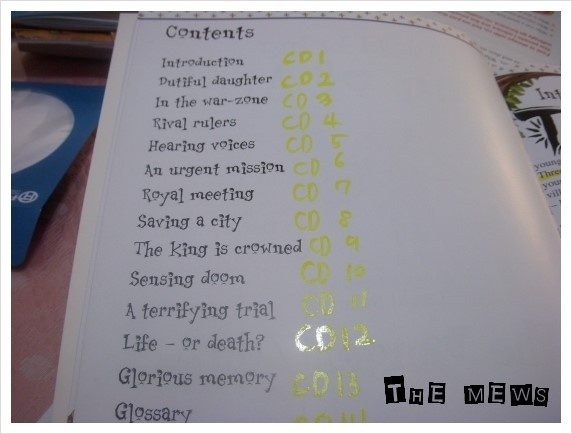 Contents
Introduction CD 1
Dutiful daughter CD 2
In the war-zone CD 3
Rival rulers CD 4
Hearing voices CD 5
An urgent mission CD 6
Royal meeting CD 7
Saving a city CD 8
The king is crowned CD 9
Sensing doom CD 10
A terrifying trial CD 11
Life - or death? CD 12
Glorious memory CD 13
Glossary CD 14
Int
young
Three
you
vill
THE MEWS